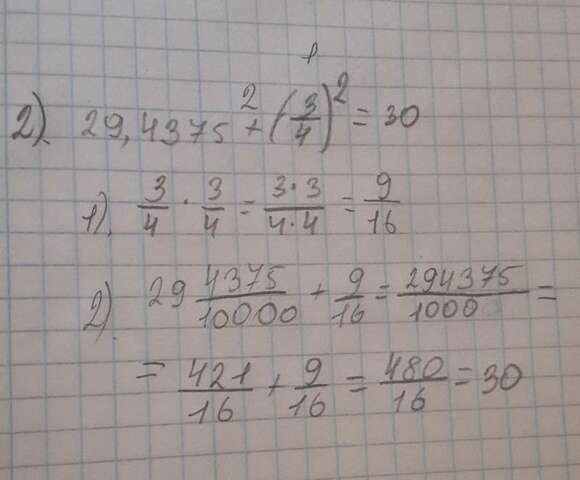 2). 29,4375 + (3/4)^2 = 30
1). 3/4 · 3/4 = 3·3/4·4 = 9/16
2) 29 4375/10000 + 9/16 = 294375/1000 =
= 421/16 + 9/16 = 480/16 = 30